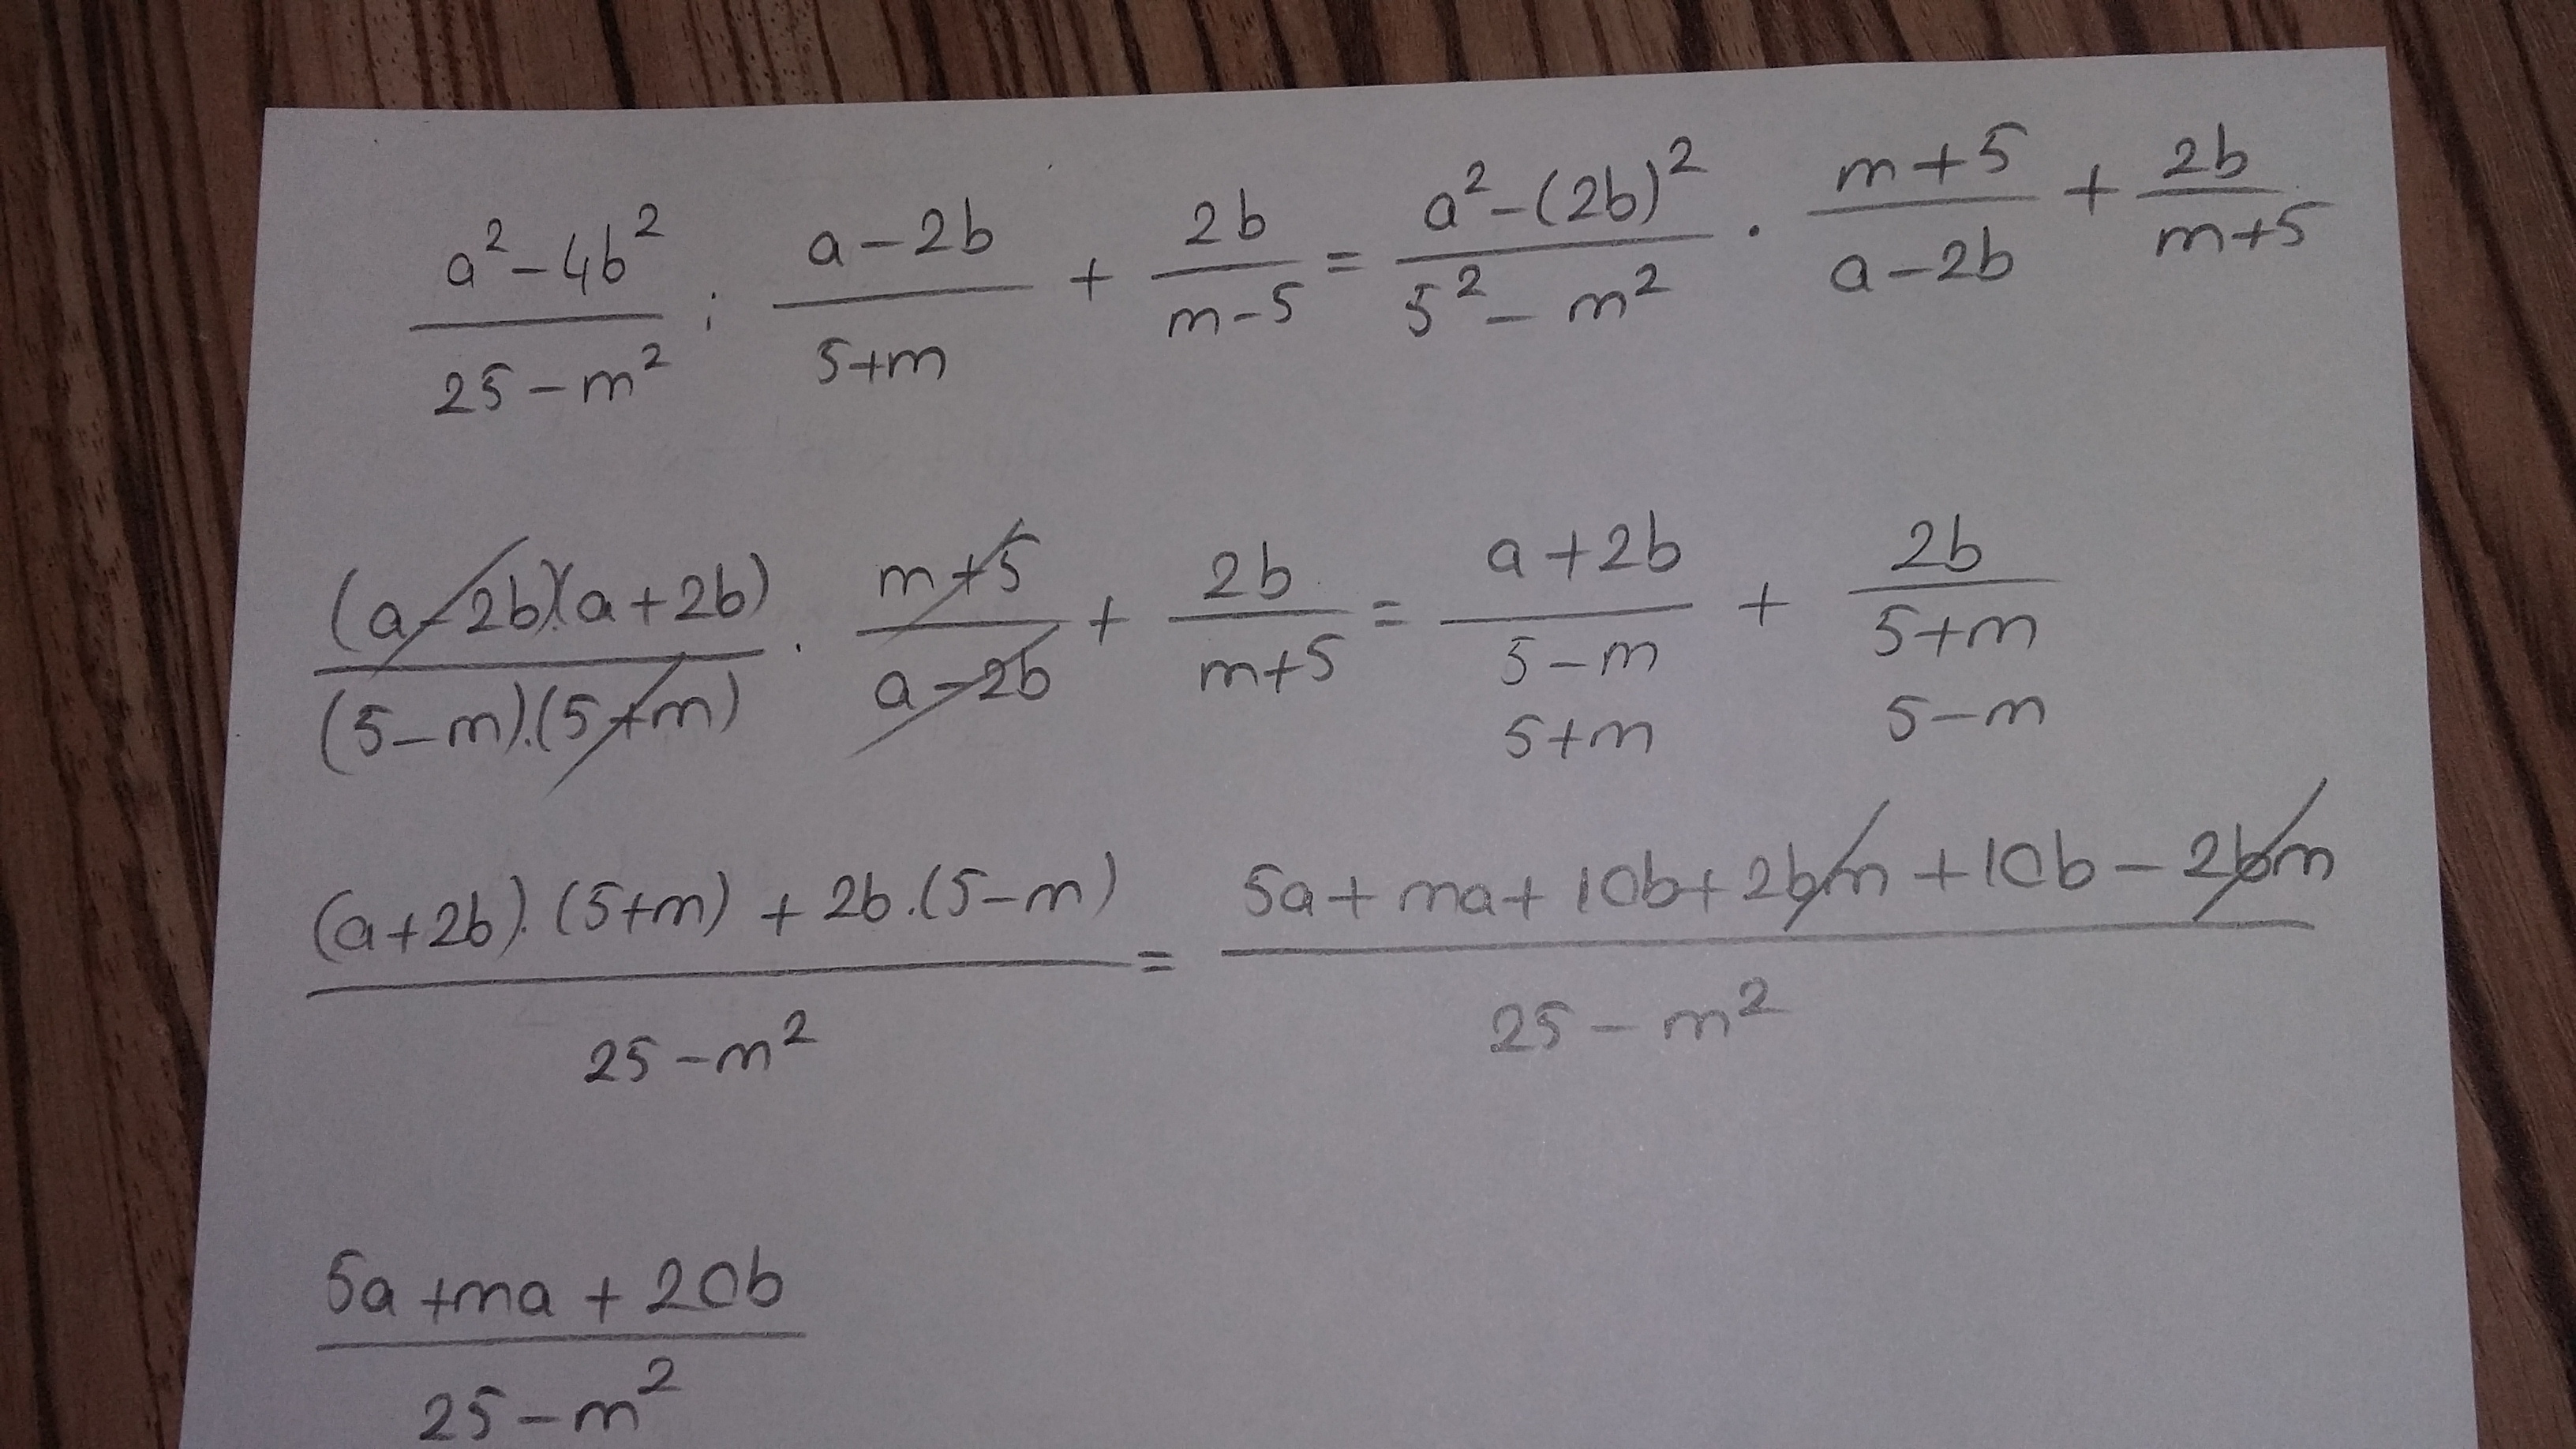 a² - 4b² / 25 - m² : a - 2b / 5+m + 2b / m-5 = a² - (2b)² / 5² - m² . m+5 / a-2b + 2b / m+5
(a-2b).(a+2b) / (5-m).(5+m) . m+5 / a-2b + 2b / m+5 = a+2b / 5-m + 2b / 5+m
5+m 5-m
(a+2b).(5+m) + 2b.(5-m) / 25-m² = 5a + ma + 10b + 2bm + 10b - 2bm / 25 - m²
5a + ma + 20b / 25 - m²